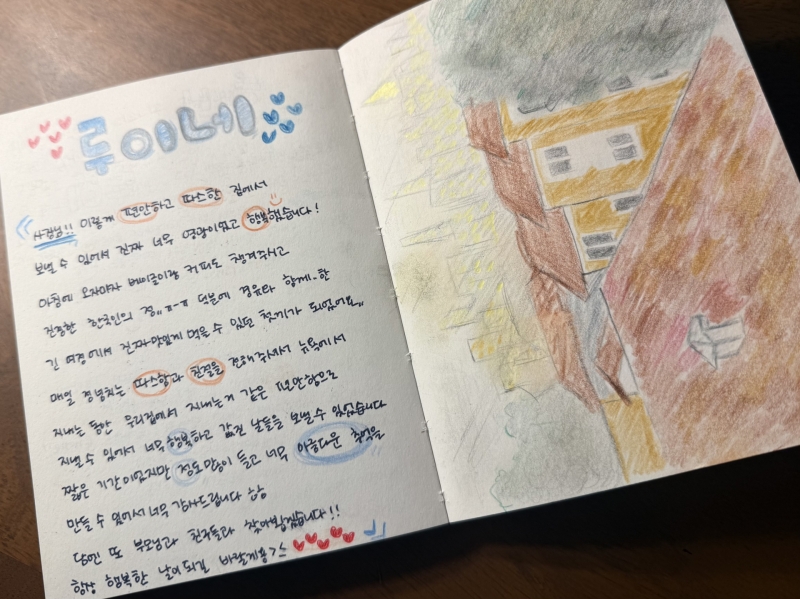 루이네
사장님!! 이렇게 편안하고 따스한 집에서
보낼 수 있어서 진짜 너무 영광이었고 행복했습니다!
아침에 오자마자 베이글이랑 커피도 챙겨주시고
진정한 한국인의 정.. ㅠ-ㅠ 덕분에 경유라 함께-한
긴 여정에서 진짜 맛있게 먹을 수 있던 첫끼가 되었어요..
매일 정넘치는 따스함과 친절을 전해주셔서 뉴욕에서
지내는 동안 우리집에서 지내는거 같은 편안함으로
지낼 수 있어서 너무 행복하고 값진 날들을 보낼 수 있었습니다
짧은 기간이었지만 정도 많이 들고 너무 아름다운 추억을
만들 수 있어서 너무 감사드립니다
담엔 또 부모님과 친구들과 찾아뵙겠습니다!!
항상 행복한 날이 되길 바랄게용